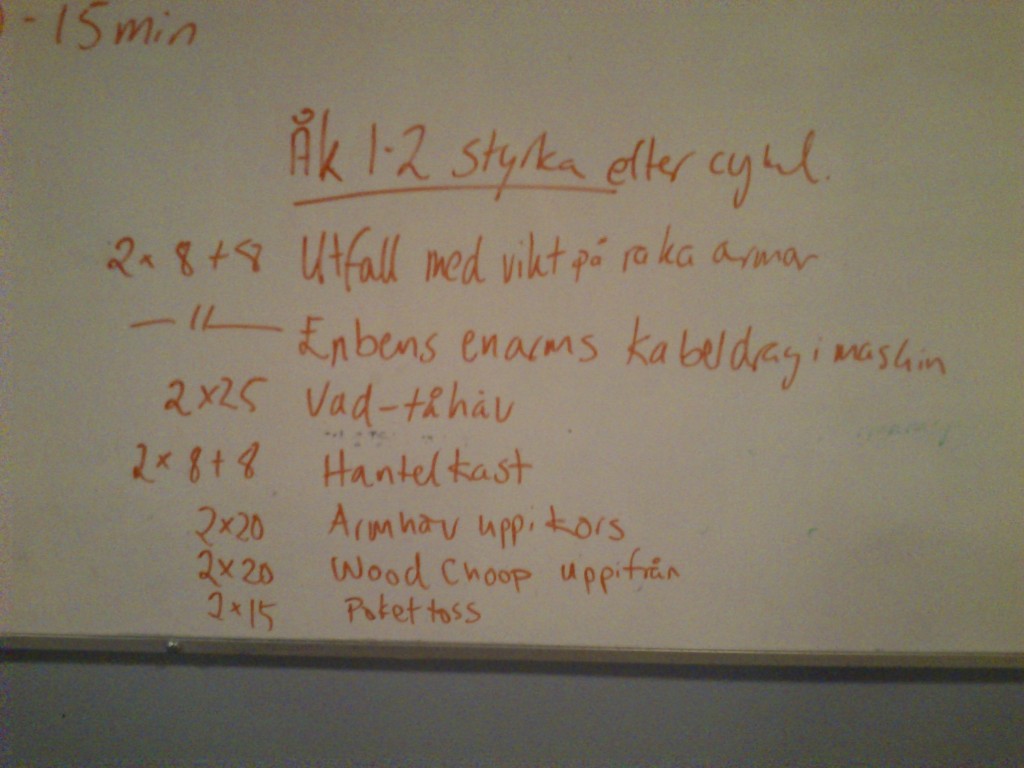 - 15min
Åk 1-2 styrka efter cykel.
2x 8+8 Utfall med vikt på raka armar
—11— Enbens enarms kabeldrag i maskin
2x25 Vad-tåhäv
2x 8+8 Hantelkast
2x20 Armhäv uppikors
2x20 Wood Choop uppifrån
2x15 Pokettoss